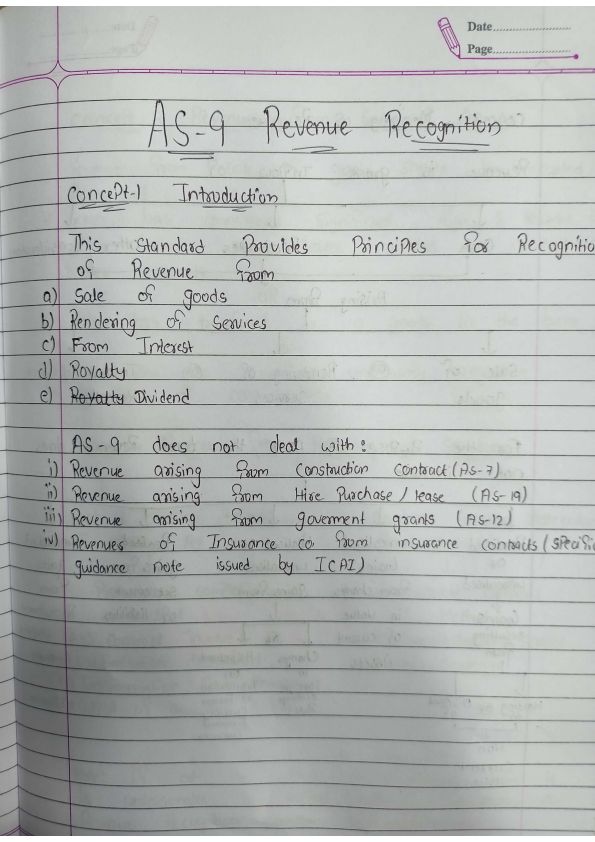 Date
Page
AS-9 Revenue Recognition
Concept-1 Introduction
This Standard Provides Principles for Recognitio
of Revenue from
a) Sale of goods
b) Rendering of Services
c) From Interest
d) Royalty
e) Royalty Dividend
AS-9 does not deal with:
i) Revenue arising from construction contract (AS-7)
ii) Revenue arising from Hire Purchase / lease (AS-19)
iii) Revenue arising from goverment grants (AS-12)
iv) Revenues of Insurance co from insurance contracts (specific
guidance note issued by ICAI)